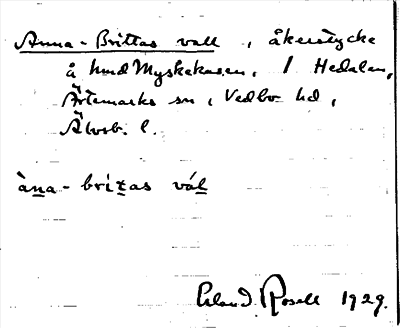 Anna-Brittas vall, åkerstycke
å hmd Myskekasen, 1 Hedalen,
Ärtemarks sn, Vedbo hd,
Älvsb. l.
àna-britas vál
Erland Rosell 1929.